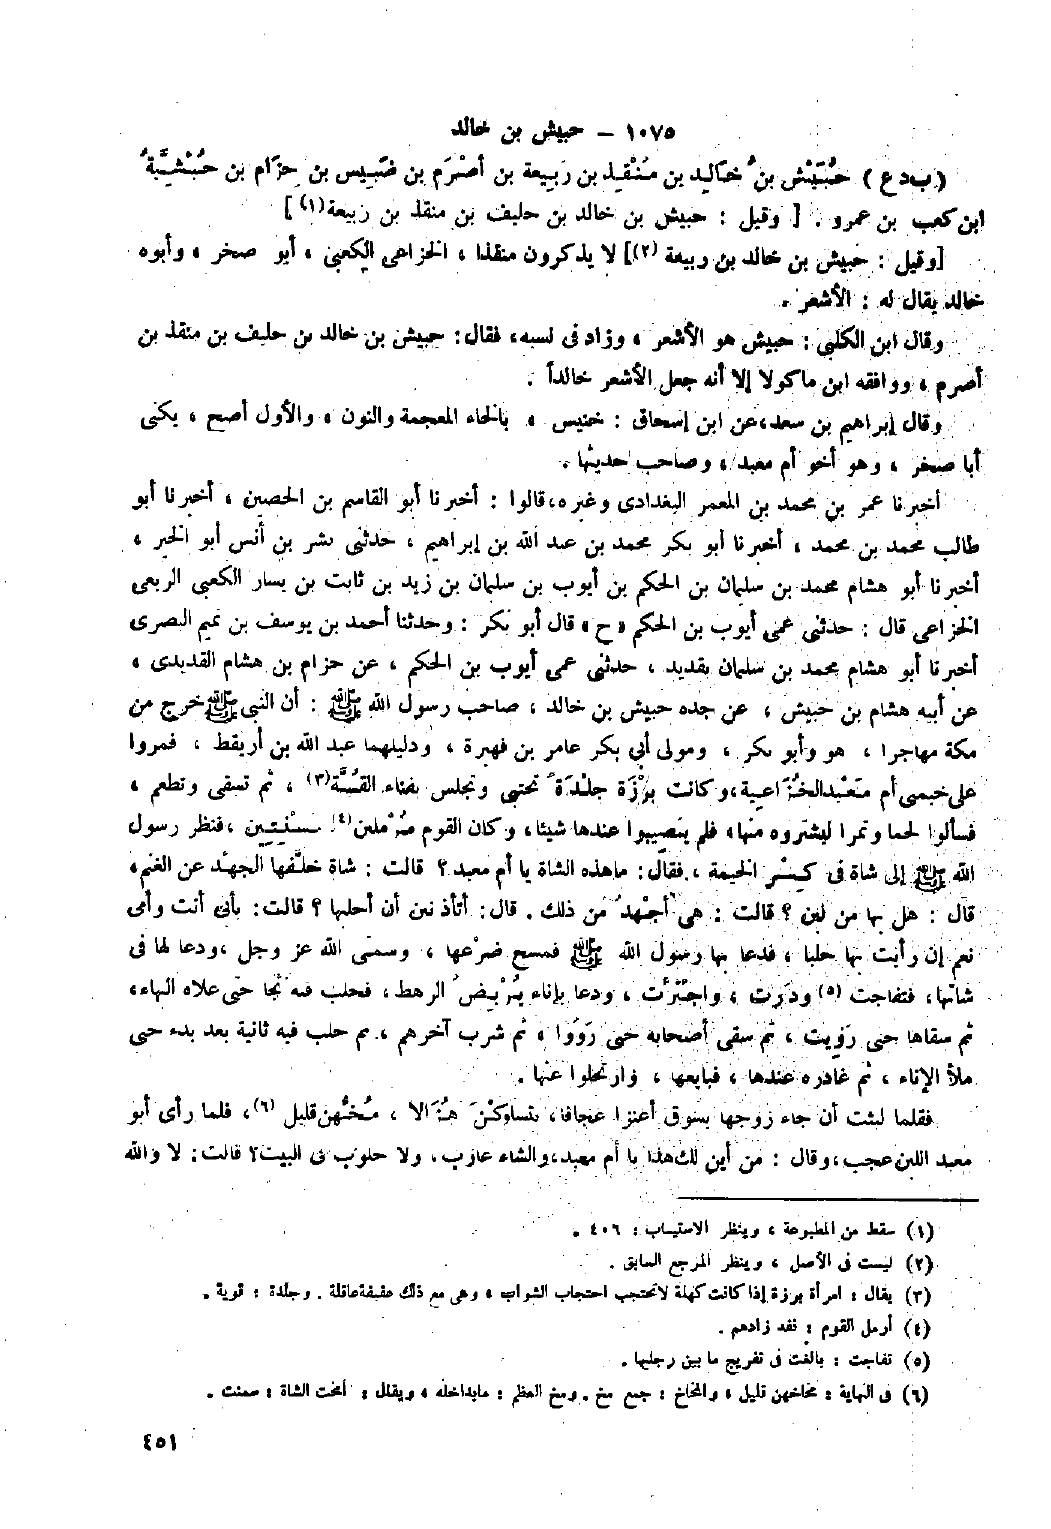 ١٠٧٥ - حبيش بن خالد
(ب د ع) حُبَيْش بن خَالِد بن مُنْقِذ بن رَبِيعة بن أصْرَم بن ضَبِيس بن حِزَام بن حُبْشِيَّة
ابن كعب بن عمرو . [ وقيل : حبيش بن خالد بن حليف بن منقذ بن ربيعة (١) ]
[وقيل : حبيش بن خالد بن ربيعة (٢)] لا يذكرون منقذا ، الخزاعى الكعبى ، أبو صخر ، وأبوه
خالد يقال له : الأشعر .
وقال ابن الكلبى : حبيش هو الأشعر ، وزاد فى نسبه، فقال: حبيش بن خالد بن حليف بن منقذ بن
أصرم ، ووافقه ابن ماكولا إلا أنه جعل الأشعر خالداً .
وقال إبراهيم بن سعد،عن ابن إسحاق : خنيس ، بالخاء المعجمة والنون ، والأول أصح ، يكنى
أبا صخر ، وهو أخو أم معبد ، وصاحب حديثها .
أخبرنا عمر بن محمد بن المعمر البغدادى وغيره،قالوا : أخبرنا أبو القاسم بن الحصين ، أخبرنا أبو
طالب محمد بن محمد ، أخبرنا أبو بكر محمد بن عبد الله بن إبراهيم ، حدثنى بشر بن أنس أبو الخير ،
أخبرنا أبو هشام محمد بن سلمان بن الحكم بن أيوب بن سلمان بن زيد بن ثابت بن يسار الكعبى الربعى
الخزاعى قال : حدثنى عمى أيوب بن الحكم « ح » قال أبو بكر : وحدثنا أحمد بن يوسف بن تميم البصرى
أخبرنا أبو هشام محمد بن سلمان بقديد ، حدثنى عمى أيوب بن الحكم ، عن حزام بن هشام القديدى ،
عن أبيه هشام بن حبيش ، عن جده حبيش بن خالد ، صاحب رسول الله ﷺ : أن النبى ﷺ خرج من
مكة مهاجرا ، هو وأبو بكر ، ومولى أبي بكر عامر بن فهيرة ، ودليلهما عبد الله بن أريقط ، فمروا
على خيمى أم مَعْبَد الخُزَاعية،وكانت بَرْزَة جَلْدَة تحتبى وتجلس بفناء القُبَّة(٣) ، ثم تسقى وتطعم ،
فسألوا لحما وتمرا ليشتروه منها، فلم يُصيبوا عندها شيئا، وكان القوم مُرْمِلين(٤) مُسْنِتِين ،فنظر رسول
الله ﷺ إلى شاة فى كِسْر الخيمة ، فقال: ماهذه الشاة يا أم معبد؟ قالت : شاة خلَّفها الجهد عن الغنم،
قال : هل بها من لبن ؟ قالت : هى أجْهَد من ذلك . قال: أتأذنين أن أحلبها ؟ قالت: بأبى أنت وأمى
نعم إن رأيت بها حلبا ، فدعا بها رسول الله ﷺ فمسح ضَرْعها ، وسمّى الله عز وجل ،ودعا لها فى
شاتها، فتفاجت (٥) ودَرَّت ، واجْتَرَّت ، ودعا بإناء يُرْبِض الرهط ، فحلب فيه ثجا حتى علاه البهاء،
ثم سقاها حتى رَوِيت ، ثم سقى أصحابه حتى رَوُوا ، ثم شرب آخرهم ، ثم حلب فيه ثانية بعد بدء حتى
ملأ الإناء ، ثم غادره عندها ، فبايعها ، وارتحلوا عنها .
فقلما لبثت أن جاء زوجها يسوق أعنزا عجافا، يتساوكْنَ هُزَالا ، مُخُّهن قليل (٦)، فلما رأى أبو
معبد اللبن عجب،وقال : من أين لك هذا يا أم معبد،والشاء عازب. ولا حلوب فى البيت؟ قالت: لا والله
(١) سقط من المطبوعة ، وينظر الاستيعاب : ٤٠٦ .
(٢) ليست فى الأصل ، وينظر المرجع السابق .
(٣) يقال : امرأة برزة إذا كانت كهلة لا تحتجب احتجاب الشواب ، وهى مع ذلك عفيفة عاقلة . وجلدة : قوية .
(٤) أرمل القوم : نفد زادهم .
(٥) تفاجت : بالغت فى تفريج ما بين رجليها .
(٦) فى النهاية : مخاخهن قليل ، والمخاخ : جمع مخ . ومخ العظم : ما بداخله ، ويقال : أمخت الشاة : سمنت .
٤٥١